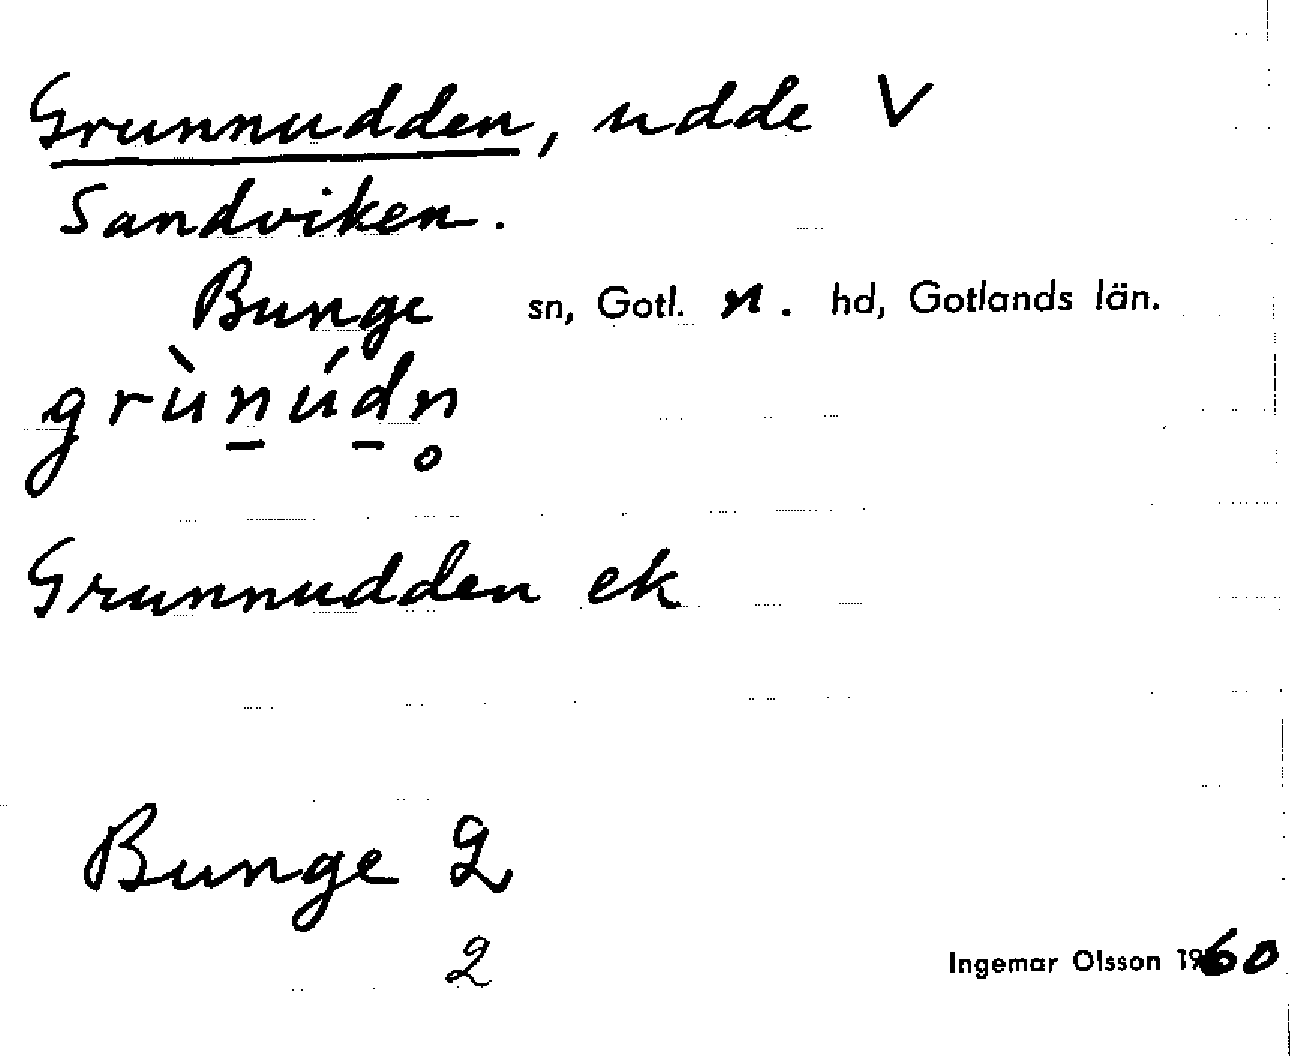 Grunnudden, udde V
Sandviken.
Bunge sn, Gotl. n. hd, Gotlands län.
grùn̲úd̲n̥
Grunnudden ek
Bunge 2
2
Ingemar Olsson 1960